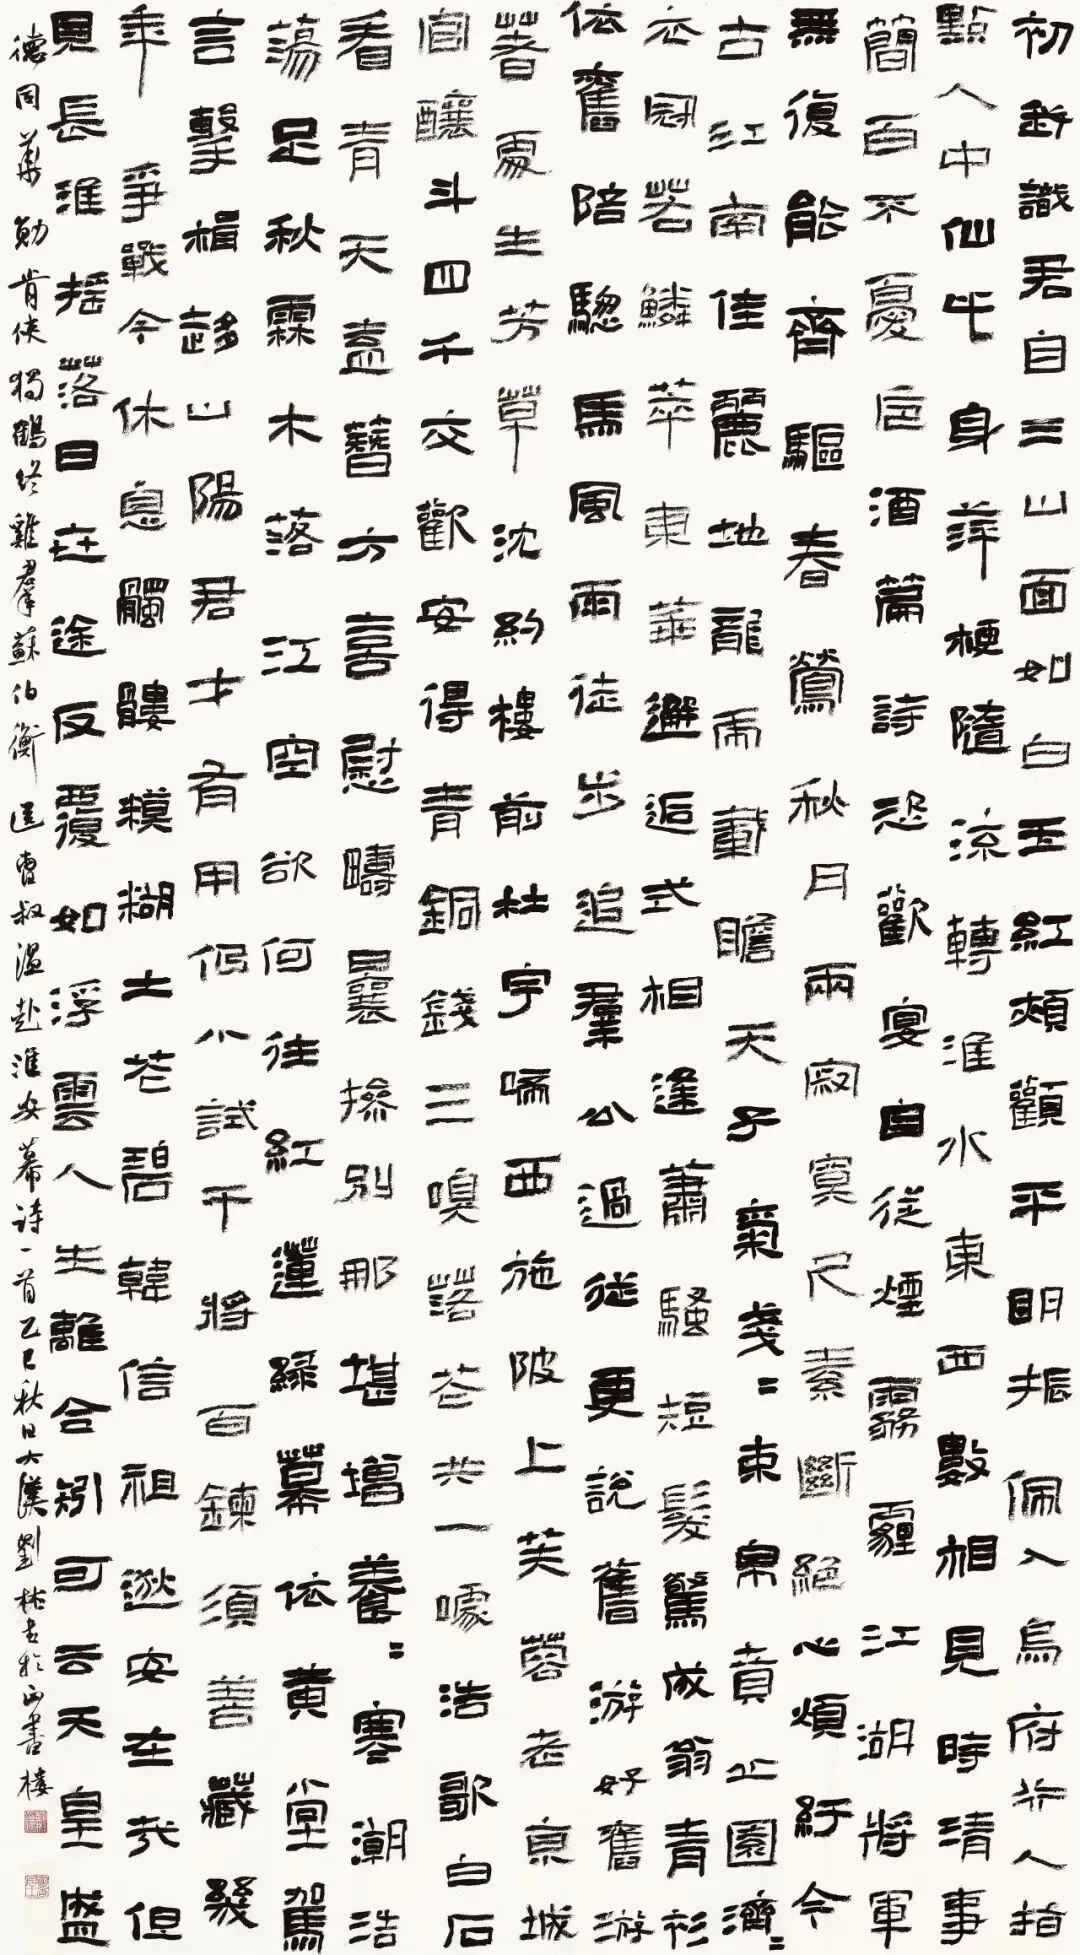 初釬識君自三山面如白玉紅頰顴平明振佩入烏府行人指
點人中仙此身萍梗隨流轉淮水東西數相見時清事
簡百不憂唇酒篇詩恣歡宴自從煙霧霾江湖將軍
無復能齊驅春鶯秋月兩寂寞尺素斷絕心煩紆今
古江南佳麗地龍虎載瞻天子氣戔戔束帛賁丘園濟濟
衣冠若鱗萃東華邂逅式相逢蕭騷短髮驚成翁青衫
依舊陪驄馬風雨徒步追羣公過從更說舊游好舊游
著處生芳草沈約樓前杜宇啼西施陂上芙蓉老京城
官釀斗四千交歡安得青銅錢三嗅落花共一噱浩歌白石
看青天盍簪方喜慰疇曩摻別那堪增養養寒潮浩
蕩足秋霖木落江空欲何往紅蓮綠幕依黃堂駕
言擊楫趍山陽君才有用但小試干將百鍊須善藏幾
年爭戰今休息髑髏模糊土花碧韓信祖逖安在哉但
見長淮搖落日世途反覆如浮雲人生離合矧可云天皇盛
德同華勛肯使獨鶴終雞羣蘇伯衡送曹叔溫赴淮安幕詩一首乙巳秋日大漢劉 書於 書樓